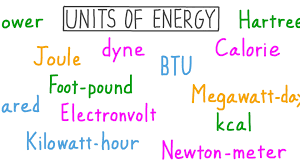 ower UNITS OF ENERGY Hartree
Joule dyne Calorie
BTU
Foot-pound
ared Electronvolt Megawatt-day
kcal
Kilowatt-hour Newton-meter